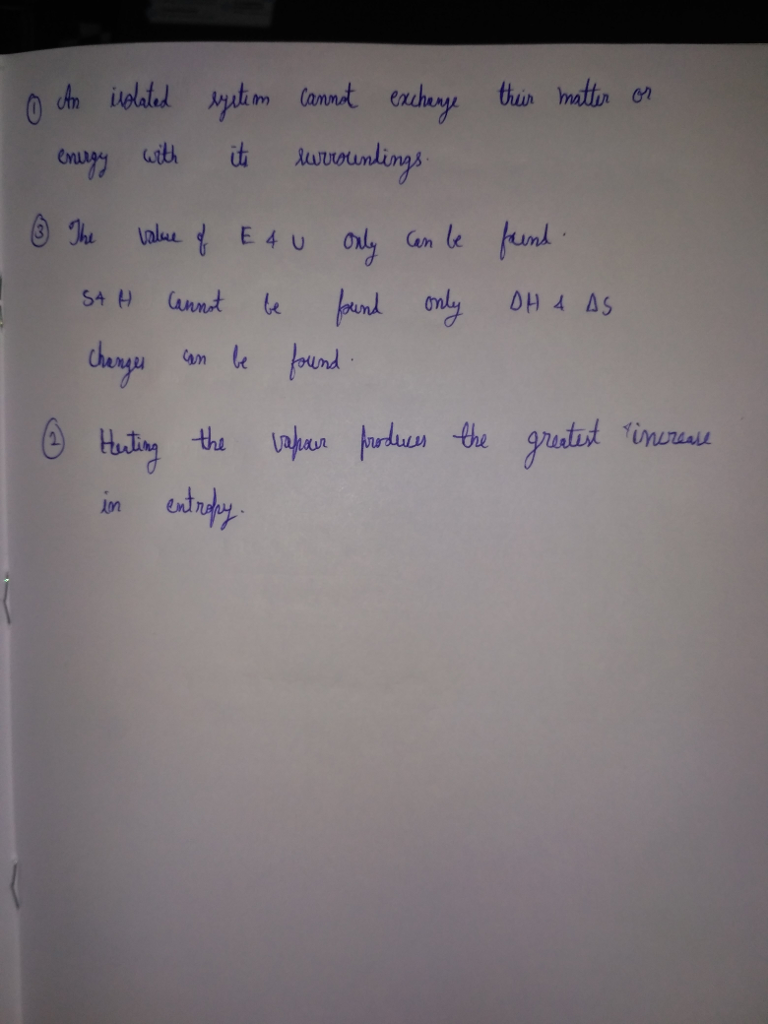 ① An isolated system cannot exchange their matter or
energy with its surroundings.
③ The value of E & U only can be found.
S & H cannot be found only ΔH & ΔS
changes can be found.
② Heating the vapour produces the greatest increase
in entropy.